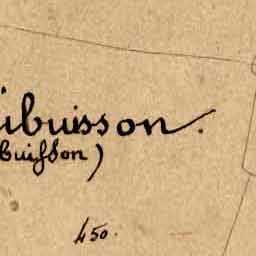 ibuisson.
buisson)
450.